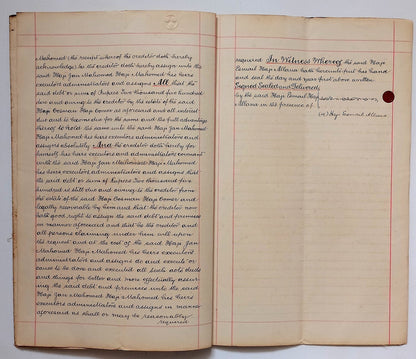 Mahomed (the receipt wherof the creditor doth hereby
acknowledge) he the creditor doth hereby assign unto the
said Haji Jan Mahomed Haji Mahomed his heirs
executors administrators and assigns All that the
said debt or sum of Rupees Two thousand five hundred
due and owing to the creditor by the estate of the said
Haji Cosman Haji Comer as aforesaid and all interest
due and to become due for the same and the full advantage
thereof to hold the same unto the said Haji Jan Mahomed
Haji Mahomed his heirs executors administrators and
assigns absolutely And the creditor doth hereby for
himself his heirs executors and administrators covenant
with the said Haji Jan Mahomed Haji Mahomed
his heirs executors administrators and assigns that
the said debt or sum of Rupees Two thousand five
hundred is still due and owing to the creditor from
the estate of the said Haji Cosman Haji Comer and
legally recoverable by him and that the creditor now
hath good right to assign the said debt and premises
in manner aforesaid and that he the creditor and
all persons claiming under him will upon
the request and at the cost of the said Haji
Jan Mahomed Haji Mahomed his heirs executors
administrators and assigns do and execute or
cause to be done and executed all such acts deeds
and things for better and more effectually assur-
ing the said debt and premises unto the said
Haji Jan Mahomed Haji Mahomed his heirs
executors administrators and assigns in manner
aforesaid as shall or may be reasonably
required
required In Witness Whereof the said Haji
Esmail Haji Allana hath hereunto put his hand
and seal the day and year first above written
Signed Sealed and Delivered
by the said Haji Esmail Haji
Allana in the presence of
(s) Haji Esmail Allana